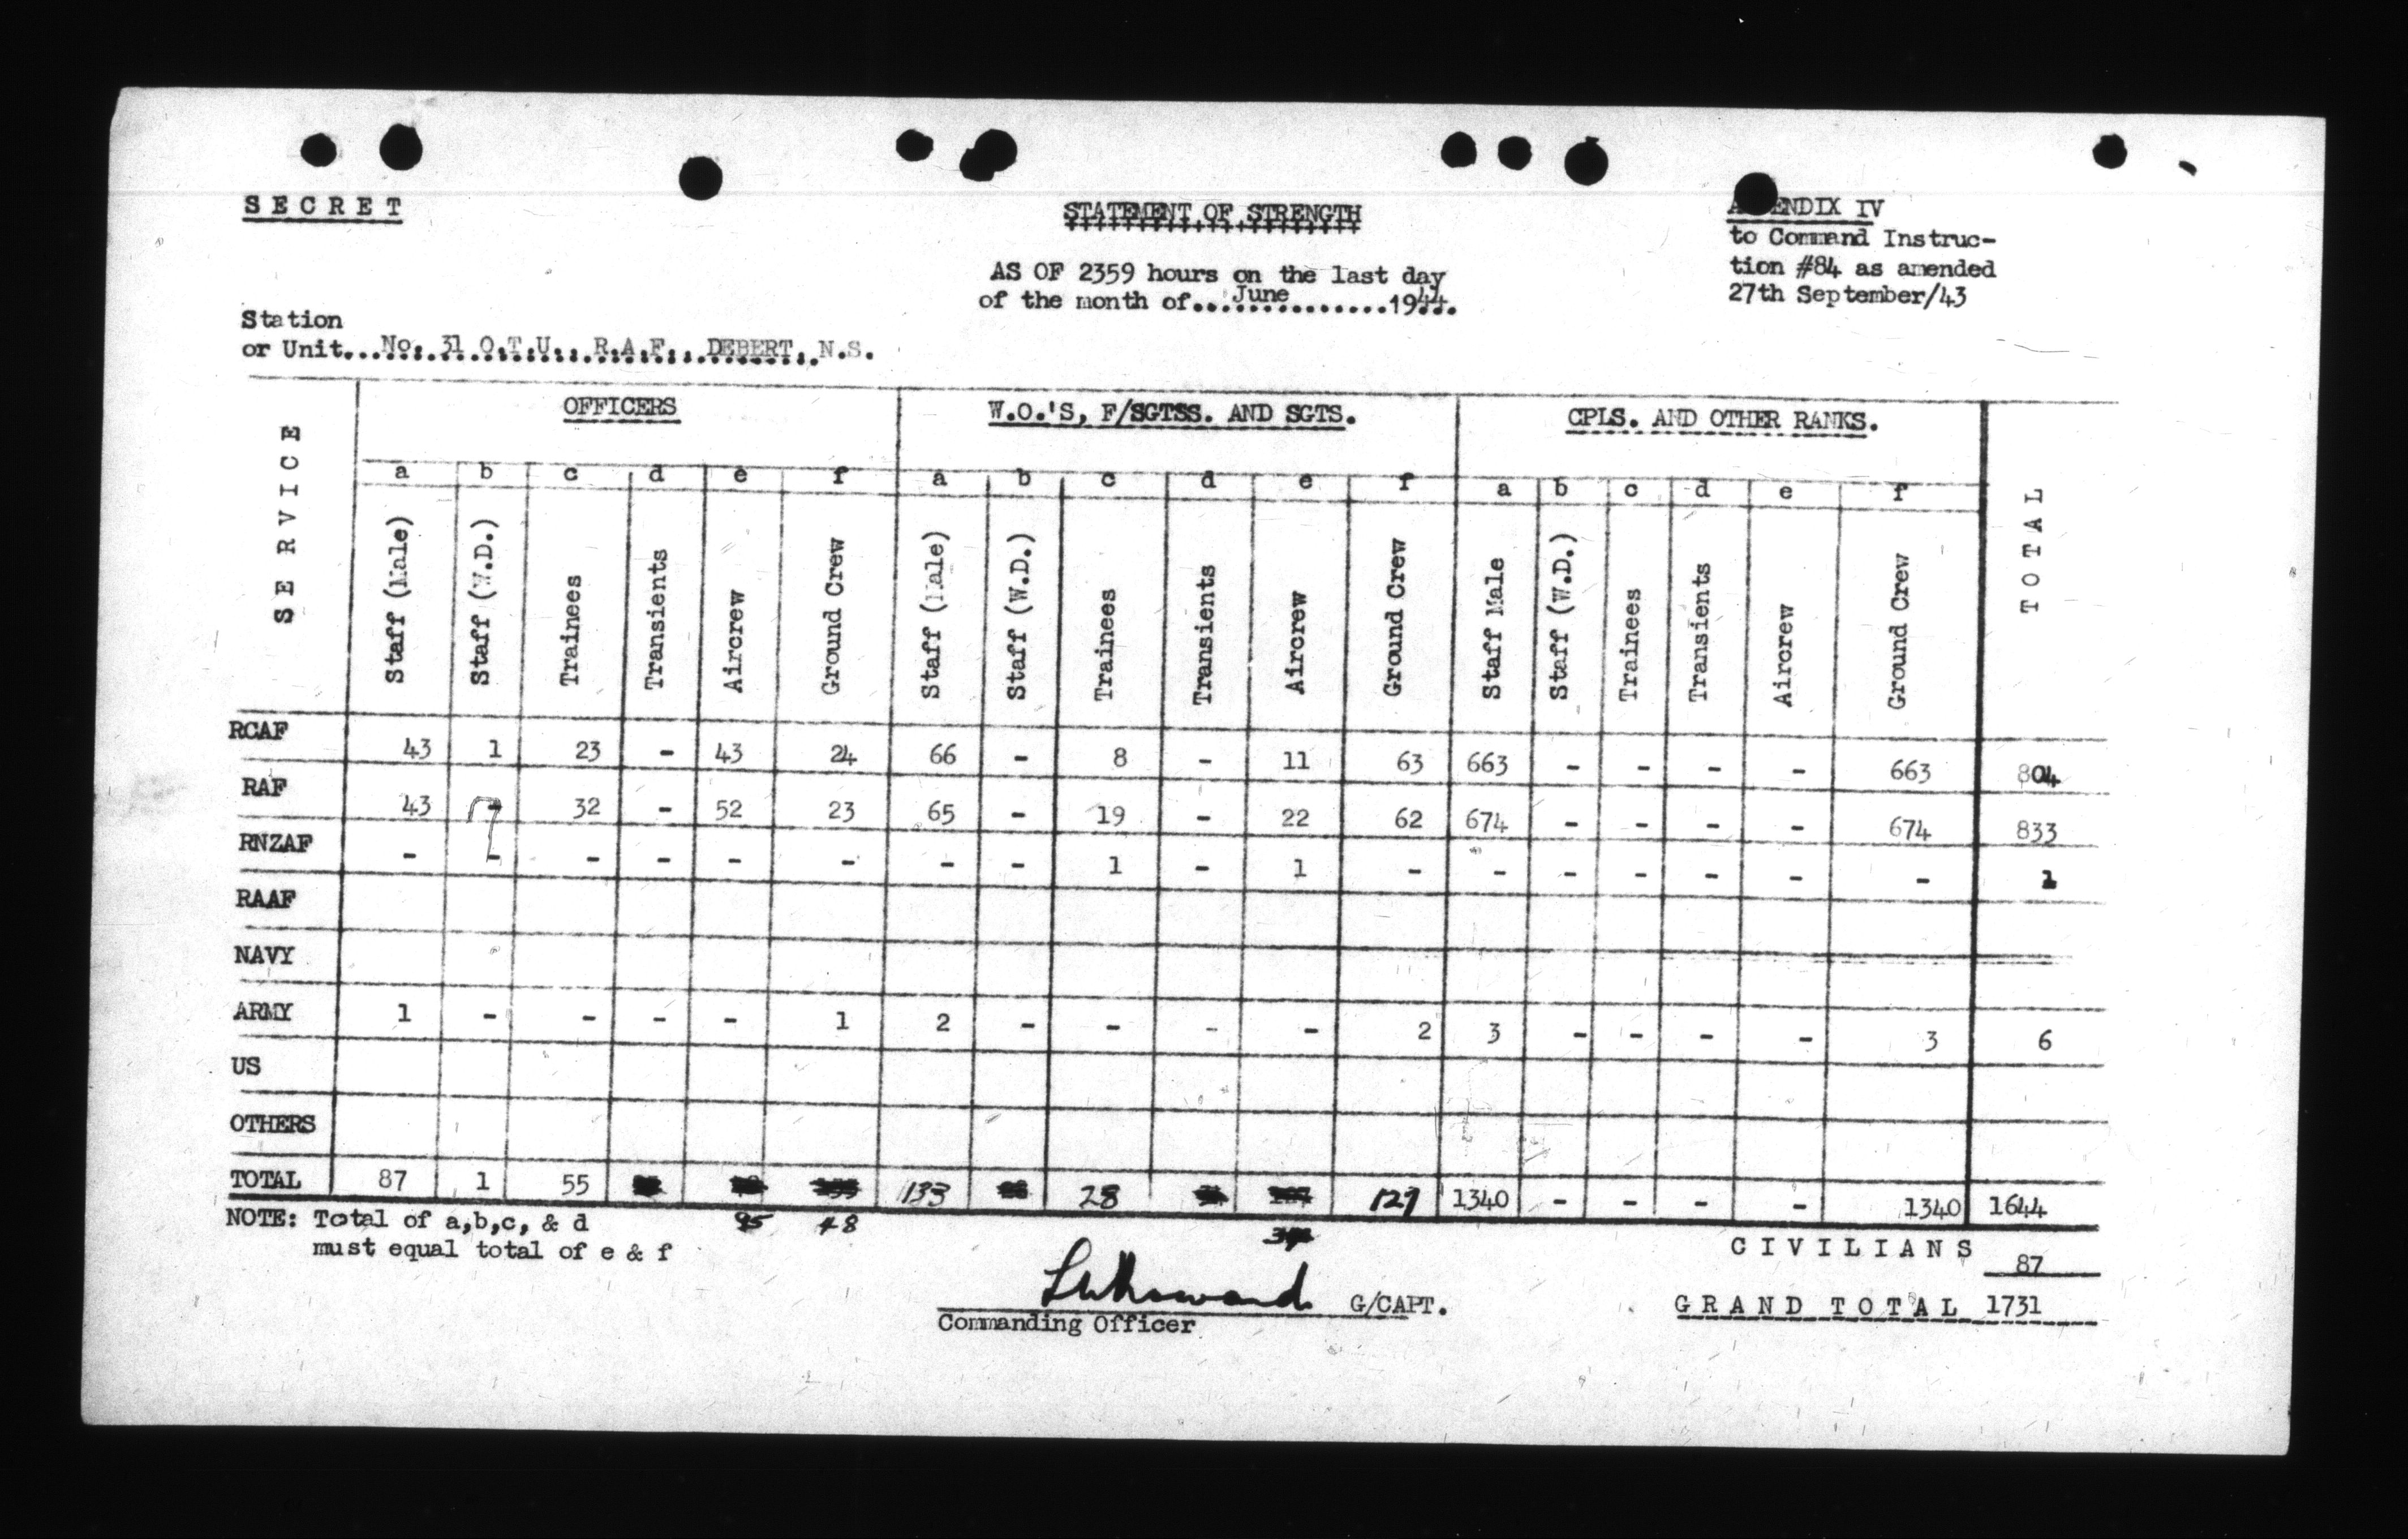 SECRET
STATEMENT OF STRENGTH
ENDIX IV
to Command Instruc-
tion #84 as amended
27th September/43
AS OF 2359 hours on the last day
of the month of...June...............1944.
Station
or Unit...No. 31 O.T.U., R.A.F., DEBERT, N.S.
SERVICE
OFFICERS
W.O.'S, F/SGTSS. AND SGTS.
CPLS. AND OTHER RANKS.
TOTAL
a b c d e f a b c d e f a b c d e f
Staff (Male) Staff (W.D.) Trainees Transients Aircrew Ground Crew Staff (Male) Staff (W.D.) Trainees Transients Aircrew Ground Crew Staff Male Staff (W.D.) Trainees Transients Aircrew Ground Crew
RCAF 43 1 23 - 43 24 66 - 8 - 11 63 663 - - - - 663 804
RAF 43 - 32 - 52 23 65 - 19 - 22 62 674 - - - - 674 833
RNZAF - - - - - - - - 1 - 1 - - - - - - - 1
RAAF
NAVY
ARMY 1 - - - - 1 2 - - - - 2 3 - - - - 3 6
US
OTHERS
TOTAL 87 1 55 133 28 127 1340 - - - - 1340 1644
NOTE: Total of a,b,c, & d 95 48
must equal total of e & f
CIVILIANS 87
G/CAPT.
Commanding Officer
GRAND TOTAL 1731